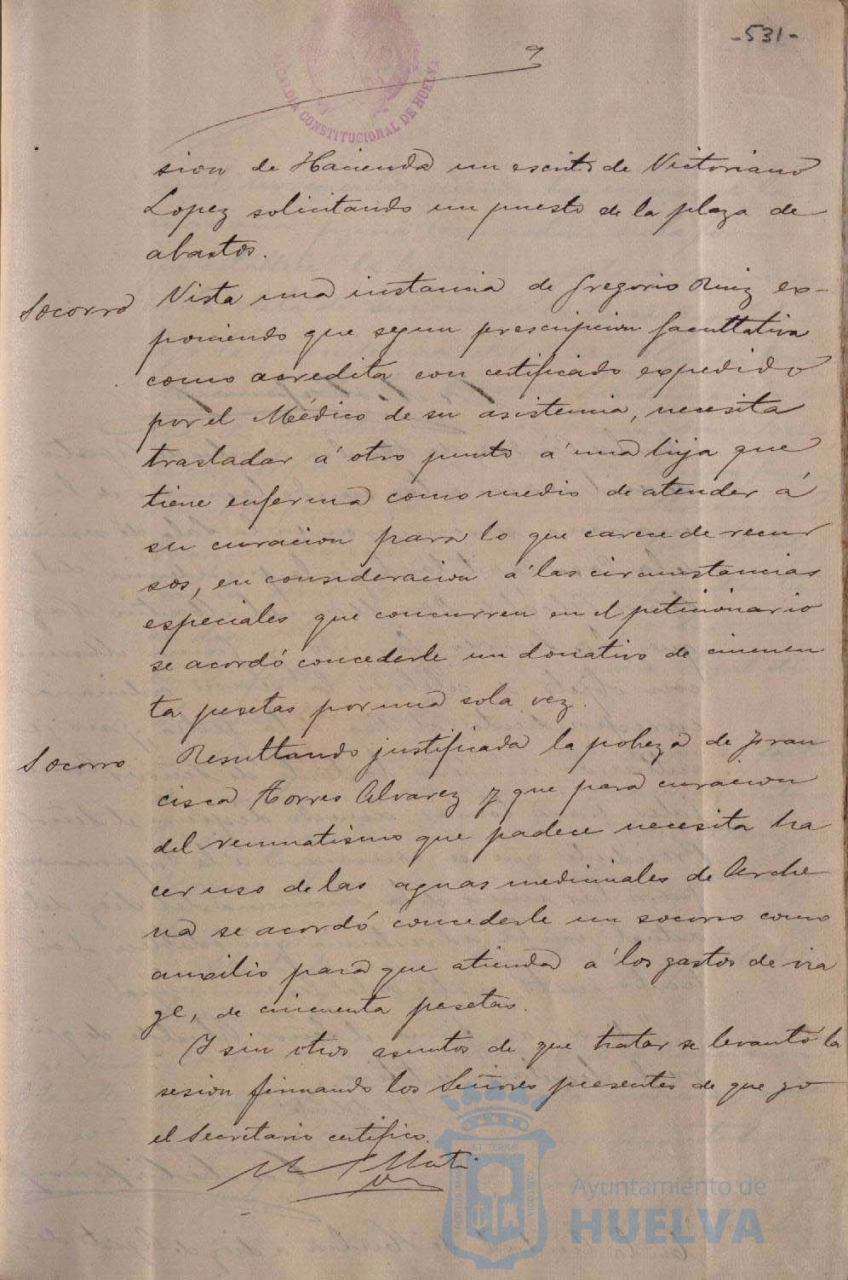 -531-
ALCALDIA CONSTITUCIONAL DE HUELVA
sion de Hacienda un escrito de Victoriano
Lopez solicitando un puesto de la plaza de
abastos.
Socorro
Vista una instancia de Gregorio Ruiz ex-
poniendo que segun prescripcion facultativa
como acredita con certificado expedido
por el Médico de su asistencia, necesita
trasladar á otro punto á una hija que
tiene enferma como medio de atender á
su curacion para lo que carece de recur
sos, en consideracion á las circunstancias
especiales que concurren en el peticionario
se acordó concederle un donativo de cincuen
ta pesetas por una sola vez.
Socorro
Resultando justificada la pobreza de Fran
cisca Torres Alvarez y que para curacion
del reumatismo que padece necesita ha
cer uso de las aguas medicinales de Arche
na se acordó concederle un socorro como
auxilio para que atienda á los gastos de via
ge, de cincuenta pesetas.
Y sin otros asuntos de que tratar se levantó la
sesion firmando los Señores presentes de que yo
el Secretario certifico.
Ayuntamiento de
HUELVA